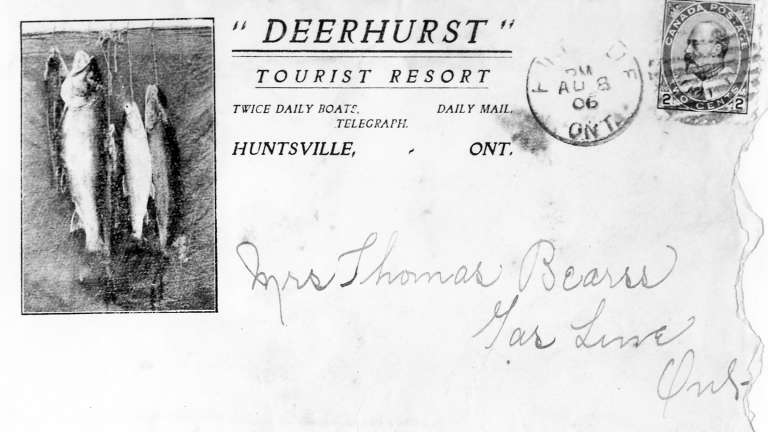 " DEERHURST "
TOURIST RESORT
TWICE DAILY BOATS. DAILY MAIL.
TELEGRAPH.
HUNTSVILLE, - ONT.
PM
AU 8
06
ONT
CANADA POSTAGE
2 TWO CENTS 2
Mrs Thomas Bearss
Gas Line
Ont